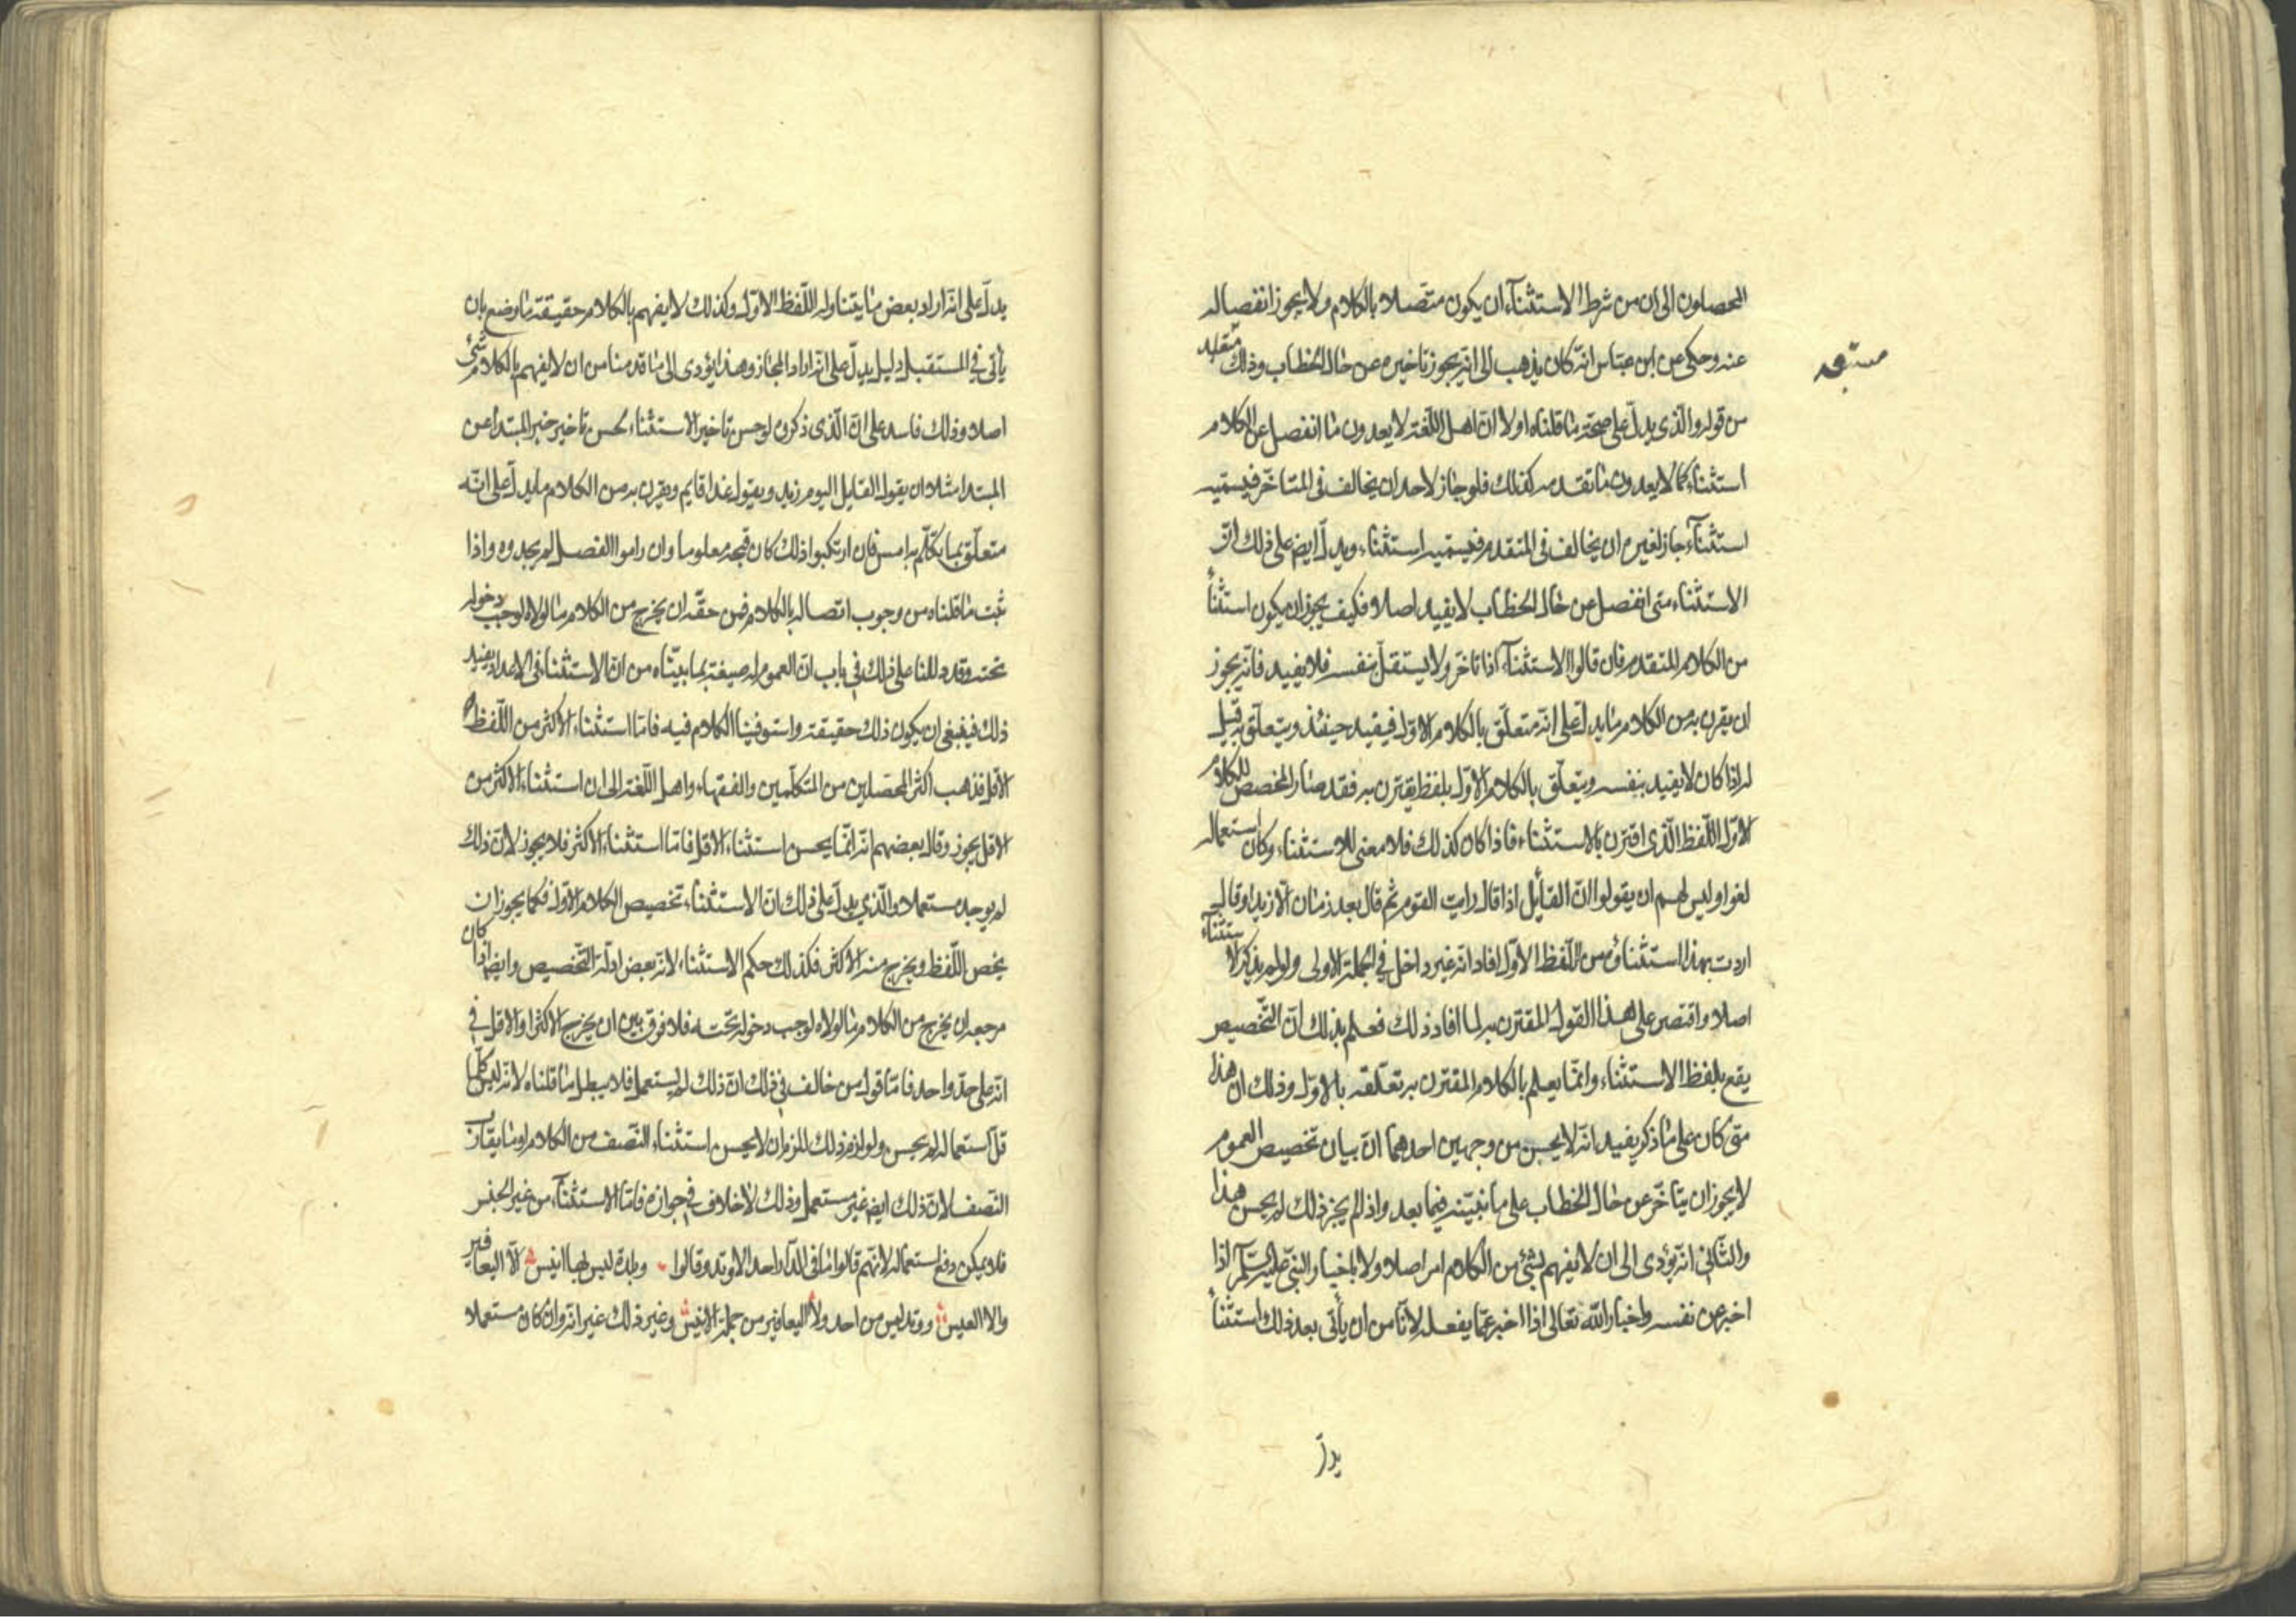 المحصلون الى ان من شرط الاستثناء ان يكون متصلا بالكلام ولا يجوز انفصاله
عنه وحكى عن ابن عباس انه كان يذهب الى انه يجوز تاخيره عن حال الخطاب وذلك
مستبعد
من قوله والذى يدل على صحة ما قلناه اولا ان اهل اللغة لا يعدون ما انفصل عن الكلام
استثناء كما لا يعدون ما تقدمه كذلك فلو جاز لاحد ان يخالف فى المتاخر فيسميه
استثناء جاز لغيره ان يخالف فى المتقدم فيسميه استثناء ويدل ايض على ذلك ان
الاستثناء متى انفصل عن حال الخطاب لا يفيد اصلا فكيف يجوز ان يكون استثناء
من الكلام المتقدم فان قالوا الاستثناء اذا تاخر ولا يستقل بنفسه فلا يفيد فانه يجوز
ان يقرن به من الكلام ما يدل على انه متعلق بالكلام الاول فيفيد حينئذ ويتعلق به قيل
له اذا كان لا يفيد بنفسه ويتعلق بالكلام الاول بلفظ يقترن به فقد صار المخصص للكلام
الاول اللفظ الذى اقترن بالاستثناء فاذا كان كذلك فلا معنى للاستثناء وكان استعماله
لغوا وليس لهم ان يقولوا ان القائل اذا قال رايت القوم ثم قال بعد زمان الا زيدا وقال
اردت بهذا استثناؤه من اللفظ الاول افاد انه غير داخل في الجملة الاولى ولو لم يذكر الاستثناء
اصلا واقتصر على هذا القول المقترن به لما افاد ذلك فعلم بذلك ان التخصيص
يقع بلفظ الاستثناء وانما يعلم بالكلام المقترن به تعلقه بالاول وذلك ان هذا
متى كان على ما ذكر يفيد انه لا يحسن من وجهين احدهما ان بيان تخصيص العموم
لا يجوز ان يتاخر عن حال الخطاب على ما نبينه فيما بعد واذا لم يجز ذلك لم يحسن هذا
والثانى انه يؤدى الى ان لا يفهم بشئ من الكلام امر اصلا ولا باخبار النبي اذا
اخبر عن نفسه ولا باخبار الله تعالى اذا اخبر عما يفعله لانا من ان ياتى بعد ذلك استثناء
يدل
يدل على انه اراد بعض ما يتناوله اللفظ الاول وكذلك لا يفهم بالكلام حقيقة ما وضع بان
ياتى في المستقبل دليل يدل على انه اراد المجاز وهذا يؤدى الى ما قدمنا من ان لا يفهم بالكلام شئ
اصلا وذلك فاسد على ان الذى ذكروه لو حسن تاخير الاستثناء لحسن تاخير خبر المبتدأ عن
المبتدا مثلا ان يقول القايل اليوم زيد ويقول غدا قايم ويقرن به من الكلام ما يدل على انه
متعلق بما تكلم به امس فان ارتكبوا ذلك كان قبحه معلوما وان راموا الفصل لم يجدوه واذا
ثبت ما قلناه من وجوب اتصاله بالكلام فمن حقه ان يخرج من الكلام ما لولاه لوجب دخوله
تحته وقد دللنا على ذلك في باب ان العموم له صيغة بما بيناه من ان الاستثناء فى الاعداد يفيد
ذلك فينبغى ان يكون ذلك حقيقته واستوفينا الكلام فيه فاما استثناء الاكثر من اللفظ
الاقل فذهب اكثر المحصلين من المتكلمين والفقهاء واهل اللغة الى ان استثناء الاكثر من
الاقل يجوز وقال بعضهم انه انما يحسن استثناء الاقل فاما استثناء الاكثر فلا يجوز لان ذلك
لم يوجد مستعملا والذي يدل على ذلك ان الاستثناء تخصيص الكلام الاول فكما يجوز ان
يخص اللفظ ويخرج منه الاكثر فكذلك حكم الاستثناء لانه بعض ادلة التخصيص وايضا اذا كان
مرجعه ان يخرج من الكلام ما لولاه لوجب دخوله تحته فلا فرق بين ان يخرج الاكثر او الاقل في
انه على حد واحد فاما قول من خالف في ذلك ان ذلك لم يستعمل فلا يبطل ما قلناه لانه ليس كل ما
قل استعماله لم يحسن ولو لزم ذلك للزم ان لا يحسن استثناء النصف من الكلام او ما يقارب
النصف لان ذلك ايض غير مستعمل وذلك لا خلاف في جوازه فاما الاستثناء من غير الجنس
فلا يمكن دفع استعماله لانهم قالوا ما فى الدار احد الا وتد وقالوا وبلدة ليس بها انيس الا اليعافير
والا العيس ووتد ليس من احد ولا اليعافير من جملة الانيس وغير ذلك غير انه وان كان مستعملا